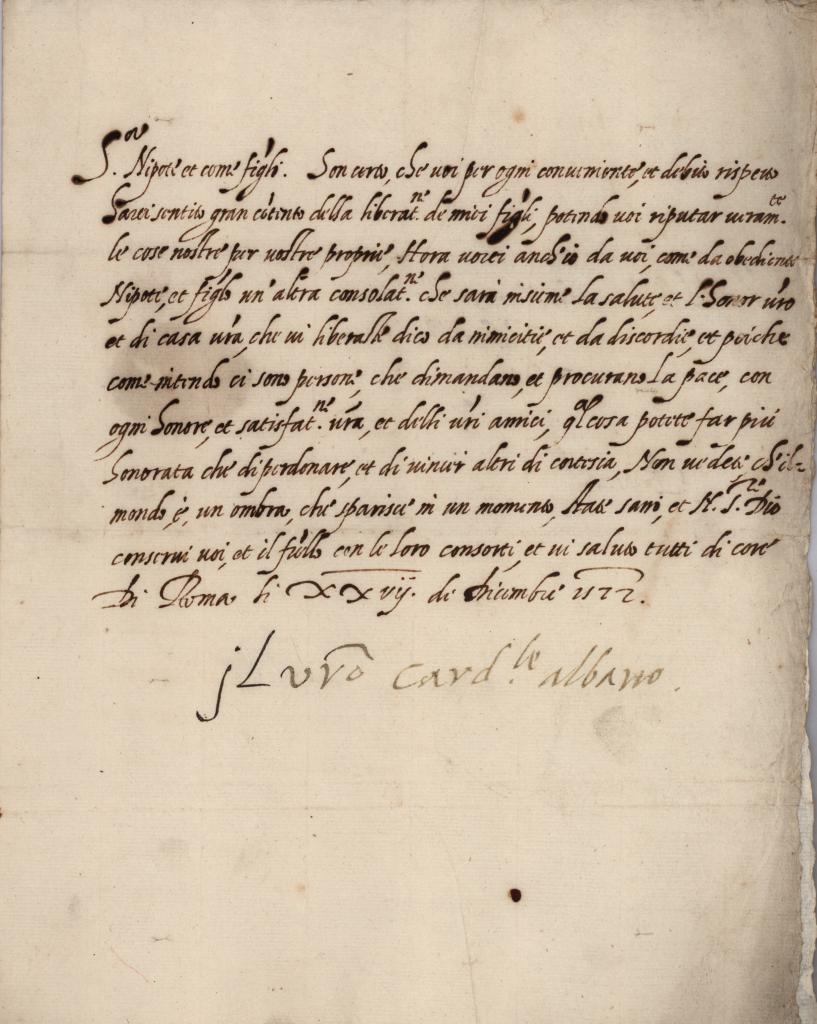 S.or Nipote et come figlo. Son certo, che voi per ogni conveniente, et debito rispetto
harei sentito gran cōtento della liberat.ne de miei figli, potendo voi riputar veram.te
le cose nostre per vostre proprie, Hora vorei anch'io da voi, come da obediente
Nipote, et figlo un' altra consolat.ne che sarà insieme la salute, et l'honor vro
et di casa vra, che vi liberaste dico da nimicitie, et da discordie, et poiche
come intendo ci sono persone, che dimandano, et procurano la pace, con
ogni honore, et satisfat.ne vra, et delli vri amici, qal cosa potete far piu
honorata che di perdonare, et di vincer altri di cortesia, Non vedete, ch'il
mondo, è, un ombra, che sparisce in un momento, state sani, et N. S.re Dio
conservi voi, et il con le loro consorti, et vi saluto tutti di core
Di Roma li XXvij. de Dicembre 1577.
il vro Card.le albano.